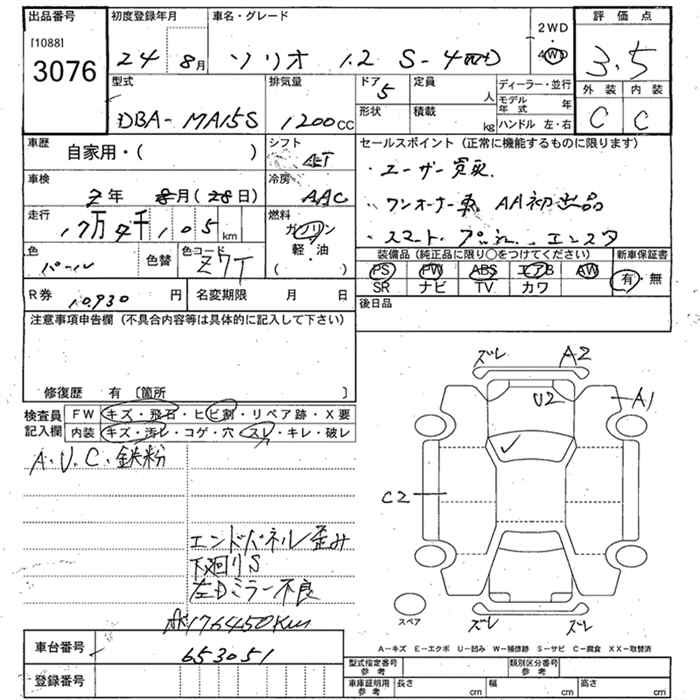 出品番号
[1088]
3076
初度登録年月
24 8月
車名・グレード
ソリオ 1.2 S-4WD
2WD
4WD
評価点
3.5
外装 内装
C C
型式
DBA- MA15S
排気量
1200cc
ドア
5
定員
人
形状
積載
kg
ディーラー・並行
モデル年式 年
ハンドル 左・右
車歴
自家用・( )
シフト
AT
セールスポイント (正常に機能するものに限ります)
・ユーザー買取
・ワンオーナー車 AA初出品
・スマート・プッシュ エンスタ
車検
年 8月(28日)
冷房
AAC
走行
17万 千105km
燃料
ガソリン
軽・油
( )
色
パール
色替
色コード
Z7T
装備品 (純正品に限り○をつけてください)
PS PW ABS エアB AW
SR ナビ TV カワ
新車保証書
有・無
R券 10,930円
名変期限 月 日
後日品
注意事項申告欄 (不具合内容等は具体的に記入して下さい)
修復歴 有 〔箇所 〕
検査員記入欄
FW キズ・飛石・ヒビ割・リペア跡・X要
内装 キズ・汚レ・コゲ・穴・スレ・キレ・破レ
A.U.C.鉄粉
エンドパネル歪み
下廻りS
左Dミラー不良
176450Km
ズレ A2
U2 A1
C2
スペア
ズレ ズレ
A-キズ E-エクボ U-凹み W-補修跡 S-サビ C-腐食 XX-取替済
車台番号
653051
登録番号
型式指定番号 参考
類別区分番号 参考
車庫証明用 参考
長さ cm
幅 cm
高さ cm